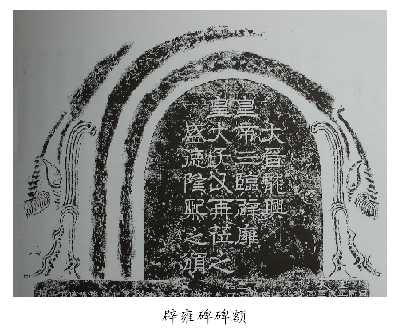 大晉龍興
皇帝三臨辟雍
皇太子又再莅之
盛德隆熙之頌
辟雍碑碑额